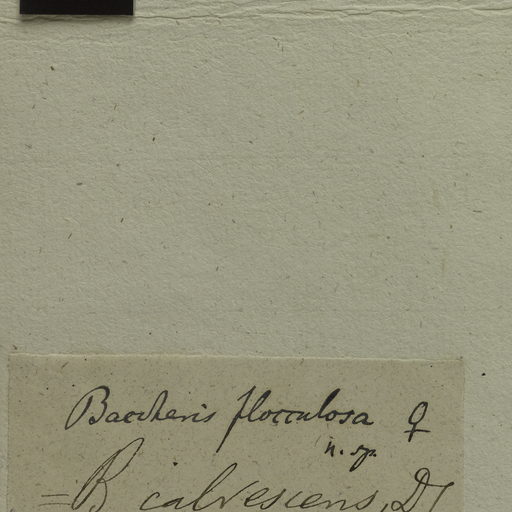 Baccharis flocculosa ♀
n. sp.
= B calvescens, DC